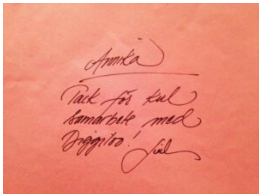 Annika
Tack för kul
samarbete med
Diggiloo!